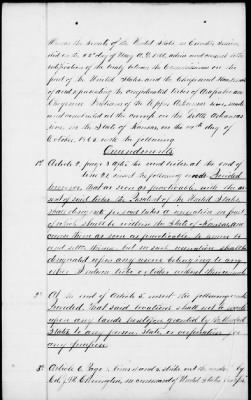 Whereas the Senate of the United States in Executive Session
did on the 22d day of May A.D. 1866, advise and consent to the
ratification of the treaty between the Commissioners on the
part of the United States, and the Chiefs and Headmen
of and representing the confederated tribes of Arapahoe and
Cheyenne Indians of the Upper Arkansas river, made
and concluded at the camp on the Little Arkansas
river in the State of Kansas, on the 14th day of
October 1865 with the following
Amendments
1st Article 2, page 3 after the word tribes at the end of
line 21 insert the following words Provided
however, That as soon as practicable, with the as-
sent of said tribe, the President of the United States
shall designate for said tribes a reservation, no part
of which shall be within the State of Kansas, and
cause them as soon as practicable to remove to
and settle thereon, but no such reservation shall be
designated upon any reserve belonging to any
other Indian tribe or tribes without their consent
2d At the end of Article 5 insert the following words
Provided, That said locations shall not be made
upon any lands heretofore granted by the United
States to any person, State, or corporation, for
any purpose
3d Article 6 Page strike out the words by
Col. J.M. Chivington, in command of United States troops